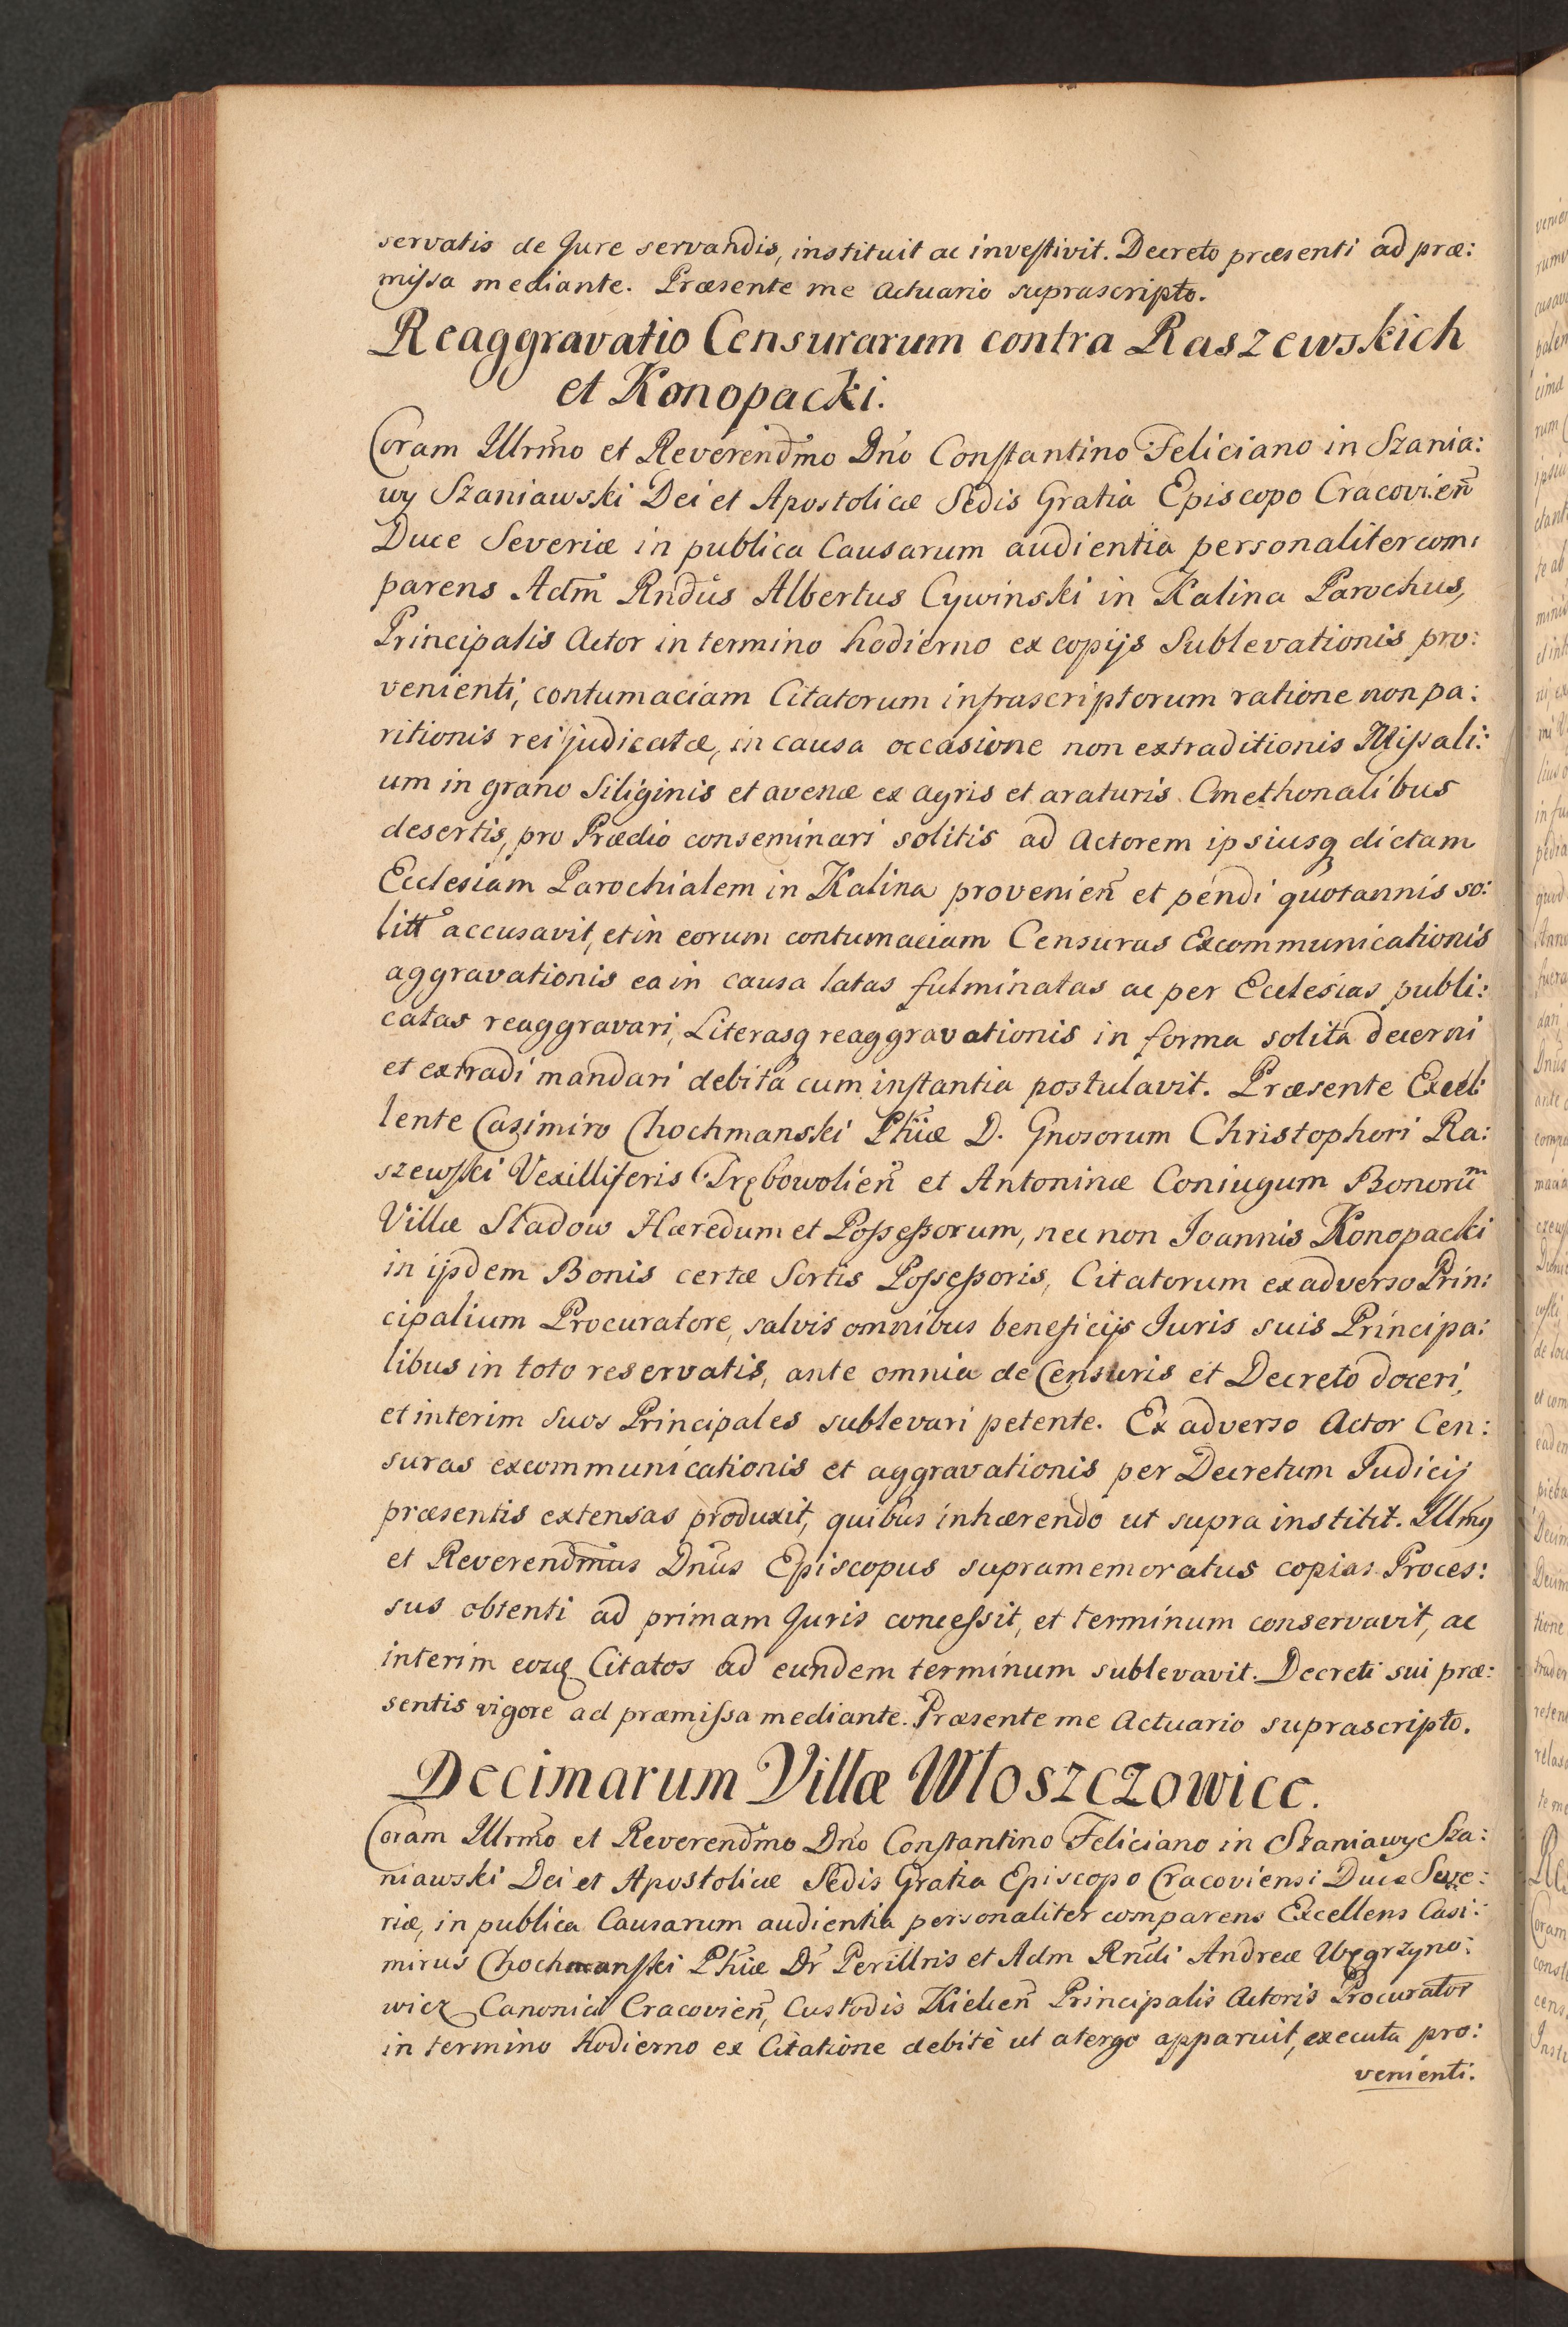 servatis de Jure servandis, instituit ac investivit. Decreto præsenti ad præ:
missa mediante. Præsente me Actuario suprascripto.
Reaggravatio Censurarum contra Raszewskich
et Konopacki.
Coram Illrmo et Reverendmo Dno Constantino Feliciano in Szania:
wy Szaniawski Dei et Apostolicæ Sedis Gratia Episcopo Cracovien
Duce Severiæ in publica Causarum audientia personaliter com:
parens Adm Rndus Albertus Cywinski in Kalina Parochus,
Principalis Actor in termino hodierno ex copijs Sublevationis pro:
venienti, contumaciam Citatorum infrascriptorum ratione non pa:
ritionis rei judicatæ, in causa occasione non extraditionis Missali:
um in grano Siliginis et avenæ ex agris et araturis Cmethonalibus
desertis, pro Prædio conseminari solitis ad Actorem ipsiusq dictam
Ecclesiam Parochialem in Kalina provenien et pendi quotannis so:
litt accusavit, et in eorum contumaciam Censuras Excommunicationis
aggravationis ea in causa latas fulminatas ac per Ecclesias publi:
catas reaggravari, Literasq reaggravationis in forma solita decerni
et extradi mandari debita cum instantia postulavit. Præsente Excel:
lente Casimiro Chochmanski Phiæ D. Gnosorum Christophori Ra:
szewski Vexilliferis Trębowolien et Antoninæ Coniugum Bonorum
Villæ Stadow Hæredum et Possessorum, nec non Joannis Konopacki
in ijsdem Bonis certæ Sortis Possessoris, Citatorum ex adverso Prin:
cipalium Procuratore, salvis omnibus beneficijs Juris suis Principa:
libus in toto reservatis, ante omnia de Censuris et Decreto doceri,
et interim Suos Principales sublevari petente. Ex adverso Actor Cen:
suras excommunicationis et aggravationis per Decretum Judicij
præsentis extensas produxit, quibus inhærendo ut supra institit. Illmg
et Reverendmus Dnus Episcopus supramemoratus copias Proces:
sus obtenti ad primam Juris concessit, et terminum conservavit, ac
interim eosq Citatos ad eundem terminum sublevavit. Decreti sui præ:
sentis vigore ad præmissa mediante. Præsente me Actuario suprascripto.
Decimarum Villæ Włoszczowice.
Coram Illrmo et Reverendmo Dno Constantino Feliciano in Szaniawy Sza:
niawski Dei et Apostolicæ Sedis Gratia Episcopo Cracoviensi Duce Seve:
riæ, in publica Causarum audientia personaliter comparens Excellens Casi:
mirus Chochmanski Phiæ Dr Perillris et Adm Rndi Andreæ Węgrzyno:
wicz Canonici Cracovien, Custodis Kielcen Principalis Actoris Procurator
in termino hodierno ex Citatione debitè ut atergo apparuit, executa pro:
venienti.